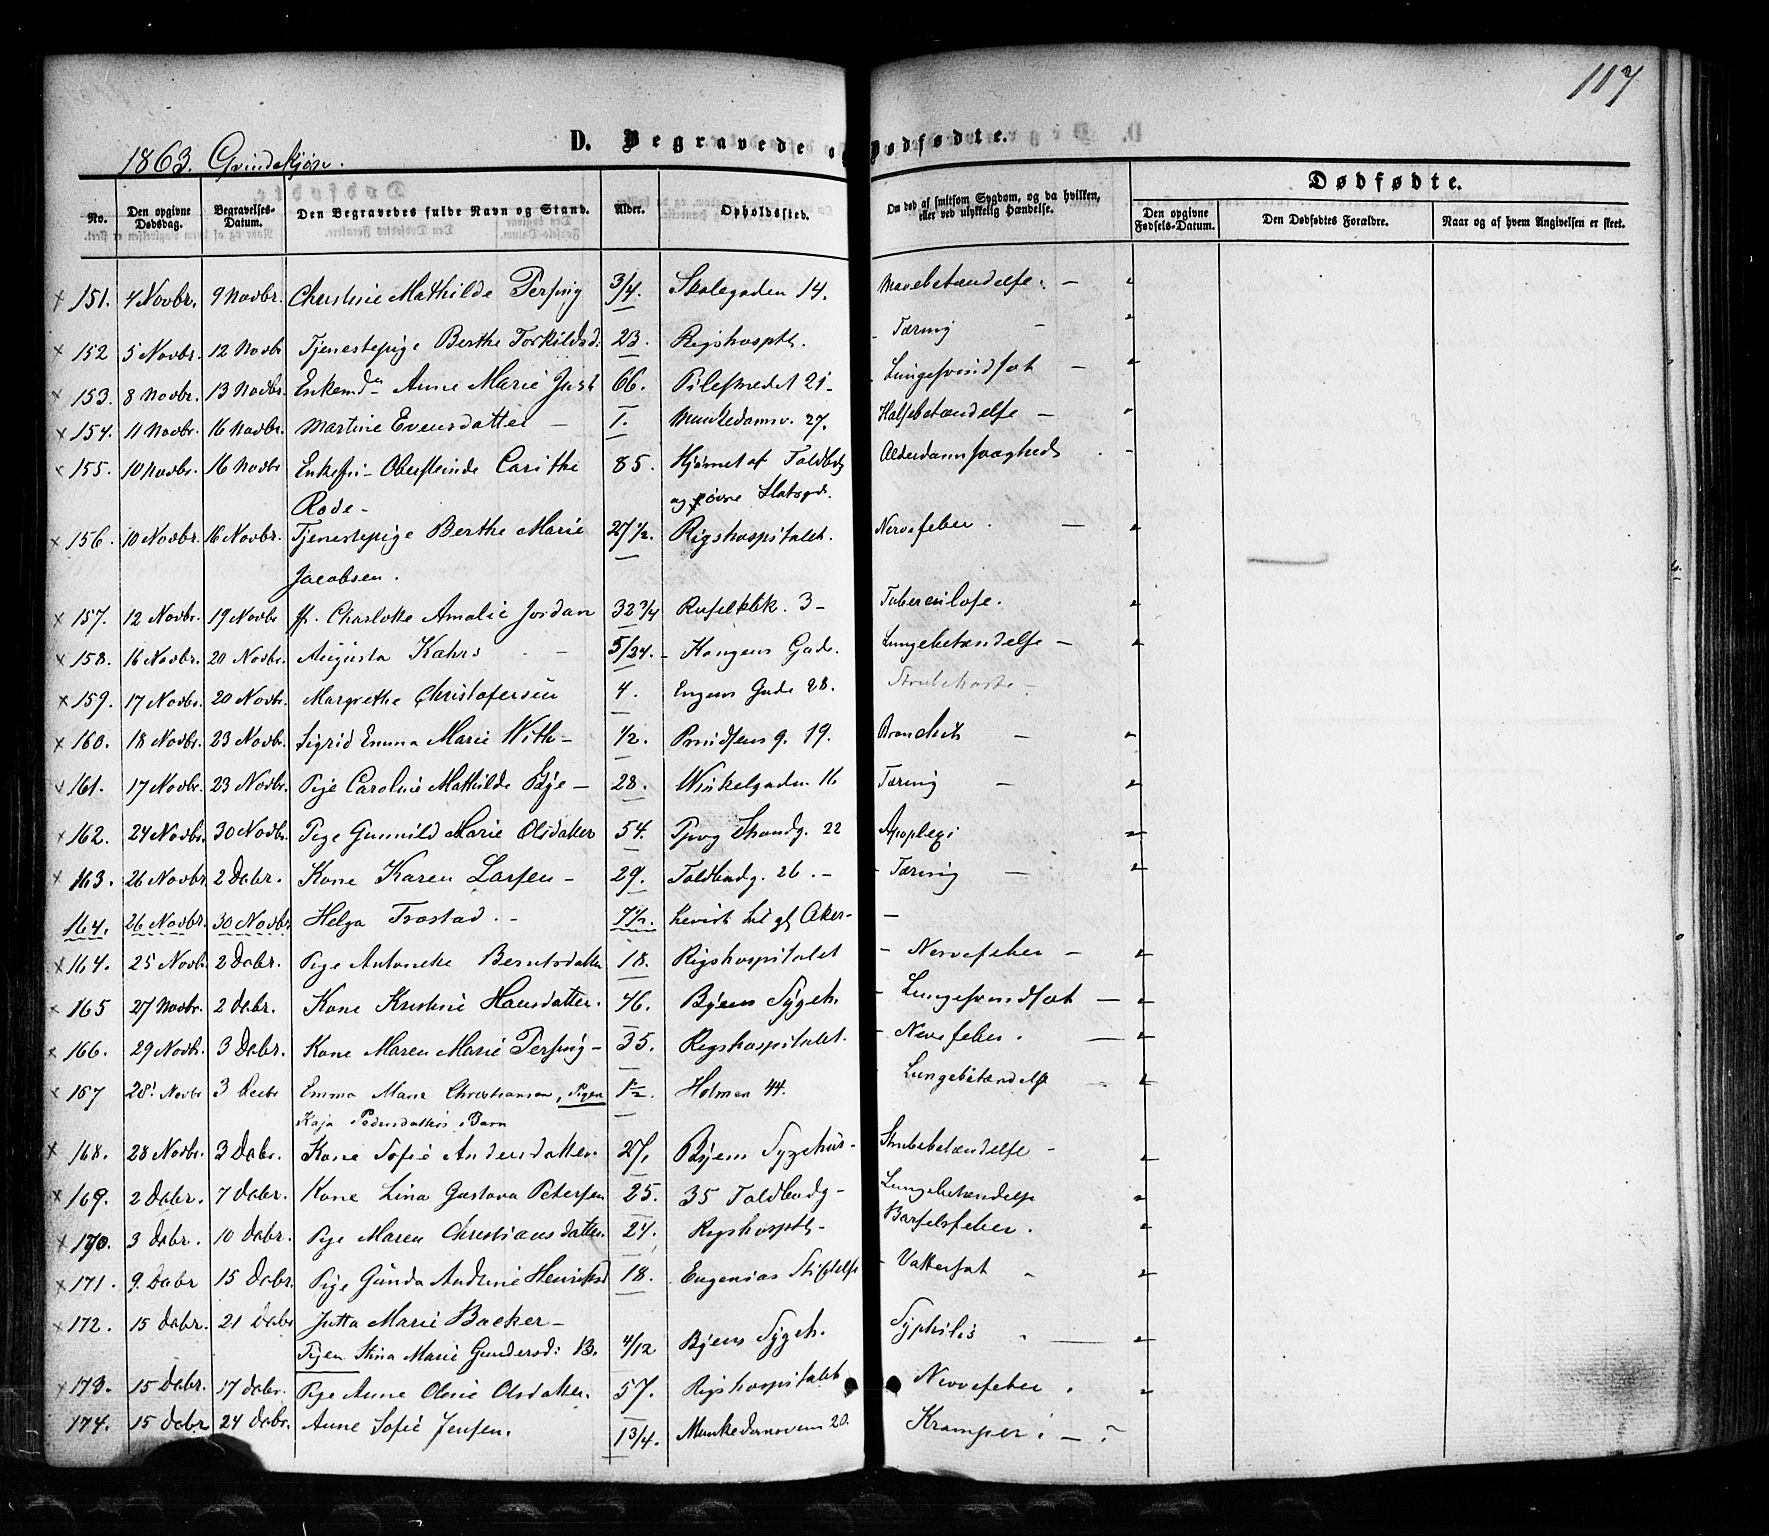 117
D. Begravede og Dødfødte.
1863. Qvindekjøn.
No. Den opgivne Dødsdag. Begravelses-Datum. Den Begravedes fulde Navn og Stand. Alder. Opholdssted. Om død af smitsom Sygdom, og da hvilken, eller ved ulykkelig Hændelse. Dødfødte.
Den opgivne Fødsels-Datum. Den Dødfødtes Forældre. Naar og af hvem Angivelsen er skeet.
151. 4 Novbr. 9 Novbr. Christine Mathilde 3/4. Skolegaden 14. Mavebetændelse. -
152 5 Novbr. 12 Novbr Tjenestepige Berthe Torkildsd. 23. Rigshosptl. Tæring -
153. 8 Novbr. 13 Novbr. Enkemd. Anne Marie Just 66. Pilestrædet 21- Lungesvindsot -
154. 11 Novbr. 16 Novbr. Martine Evensdatter - 1. Munkedamsv. 27. Halsebetændelse -
155. 10 Novbr. 16 Novbr Enkefru Carithe 85. Hjørnet af Toldbdg Alderdomssvaghed
Rode - og øvre Slotsgd.
156. 10 Novbr. 16 Novbr. Tjenestepige Berthe Marie 27 1/2. Rigshospitalet. Nervefeber. -
Jacobsen.
157. 12 Novbr. 19 Novbr fr. Charlotte Amalie Jordan 32 3/4 3- Tuberculose.
158. 16 Novbr. 20 Novbr. Augusta Kahrs - 5/24. Kongens Gade. Lungebetændelse -
159. 17 Novbr. 20 Novbr. Margrethe Christofersen 4. Engens Gade 28. Strubehoste -
160. 18 Novbr. 23 Novbr. Sigrid Emma Marie With - 1/2. 19. Bronchit -
161. 17 Novbr. 23 Novbr. Pige Caroline Mathilde Bye - 28. Winkelgaden 16 Tæring -
162. 24 Novbr. 30 Novbr. Pige Gunnild Marie Olsdatter 54. 22 Apoplexi
163. 26 Novbr. 2 Decbr. Kone Karen Larsen - 29. Toldbodg. 26. - Tæring -
164. 26 Novbr. 30 Novbr. Helga Trostad. - 7 1/2. Aker- -
164. 25 Novbr. 2 Decbr. Pige Antoneke Berntsdatter 18. Rigshospitalet Nervefeber -
165 27 Novbr. 2 Decbr. Kone Kristine Hansdatter. 46. Byens Sygeh. Lungesvindsot -
166. 29 Novbr. 3 Decbr. Kone Maren Marie 35. Rigshospitalet. Nervefeber. -
167 28 Novbr 3 Decbr Emma Marie Christiansen, Pigen 1 1/2. Holmen 44. Lungebetændelse
Kaja Pedersdatters Barn
168. 28 Novbr. 3 Decbr. Kone Sofie Andersdatter. 27. Byens Sygehus- Strubebetændelse -
169. 2 Decbr. 7 Decbr. Kone Lina Gustava Petersen 25. 35 Toldbodg- Lungebetændelse
170. 3 Decbr. 10 Decbr. Pige Maren Christiansdatter. 24. Rigshosptl- Barselsfeber.
171. 9. Decbr 15 Decbr. Pige Gunda Andrine Henriksd 18. Eugenias Stiftelse Vattersot -
172. 15 Decbr. 21 Decbr Jutta Marie Backer -
Pigen Stina Marie Gundersd: B. 4/12 Byens Sygeh. Syphilis
173. 15 Decbr. 17 Decbr. Pige Anne Oline Olsdatter. 57. Rigshospitalet Nervefeber.
174. 15 Decbr 24 Decbr. Anne Sofie Jensen. 1 3/4. Munkedamsveien 20. Kramper -